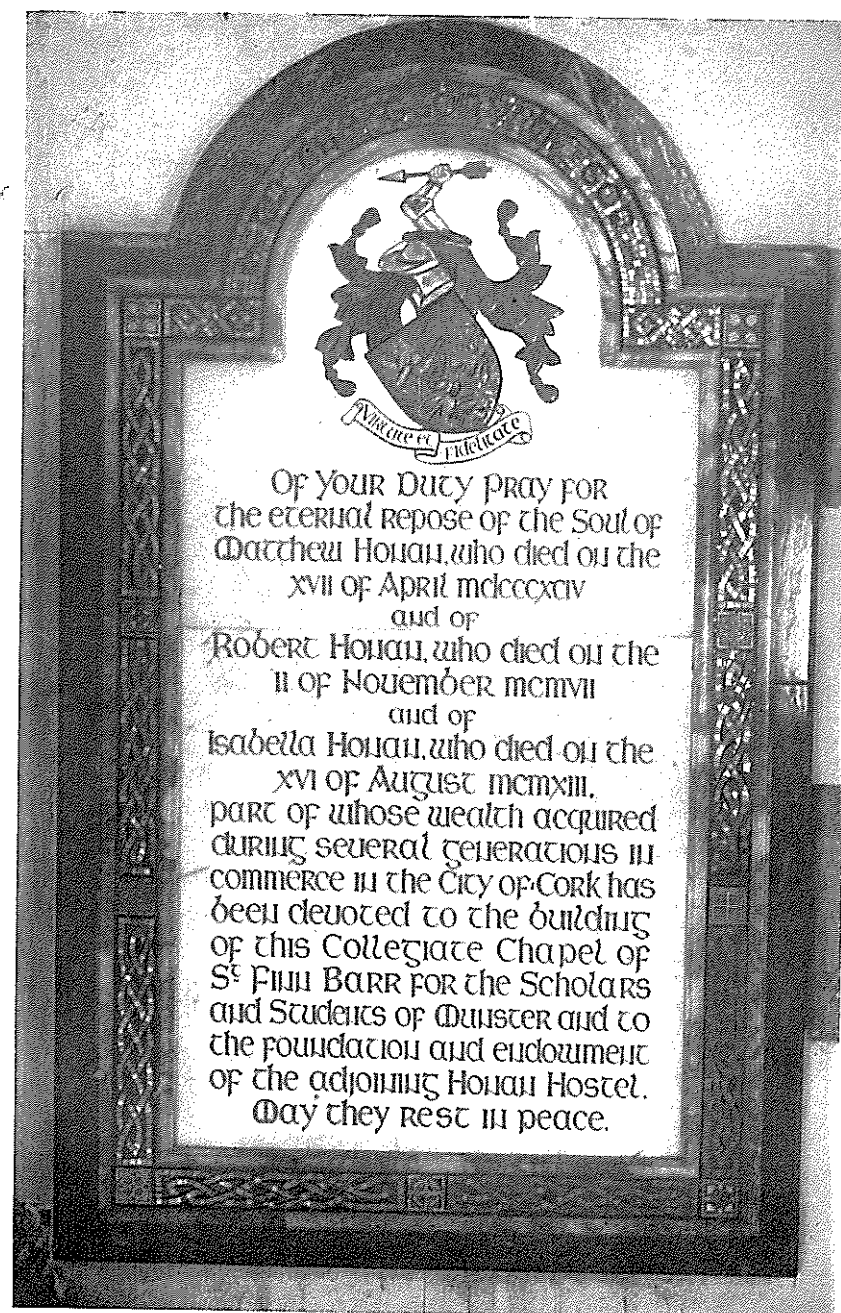 Virtute et
Fidelitate
Of Your Duty Pray for
the eternal Repose of the Soul of
Matthew Honan, who died on the
xvii of April mdcccxciv
and of
Robert Honan, who died on the
ii of November mcmvii
and of
Isabella Honan, who died on the
xvi of August mcmxiii.
part of whose wealth acquired
during several generations in
commerce in the City of Cork has
been devoted to the building
of this Collegiate Chapel of
St Finn Barr for the Scholars
and Students of Munster and to
the foundation and endowment
of the adjoining Honan Hostel.
May they Rest in peace.